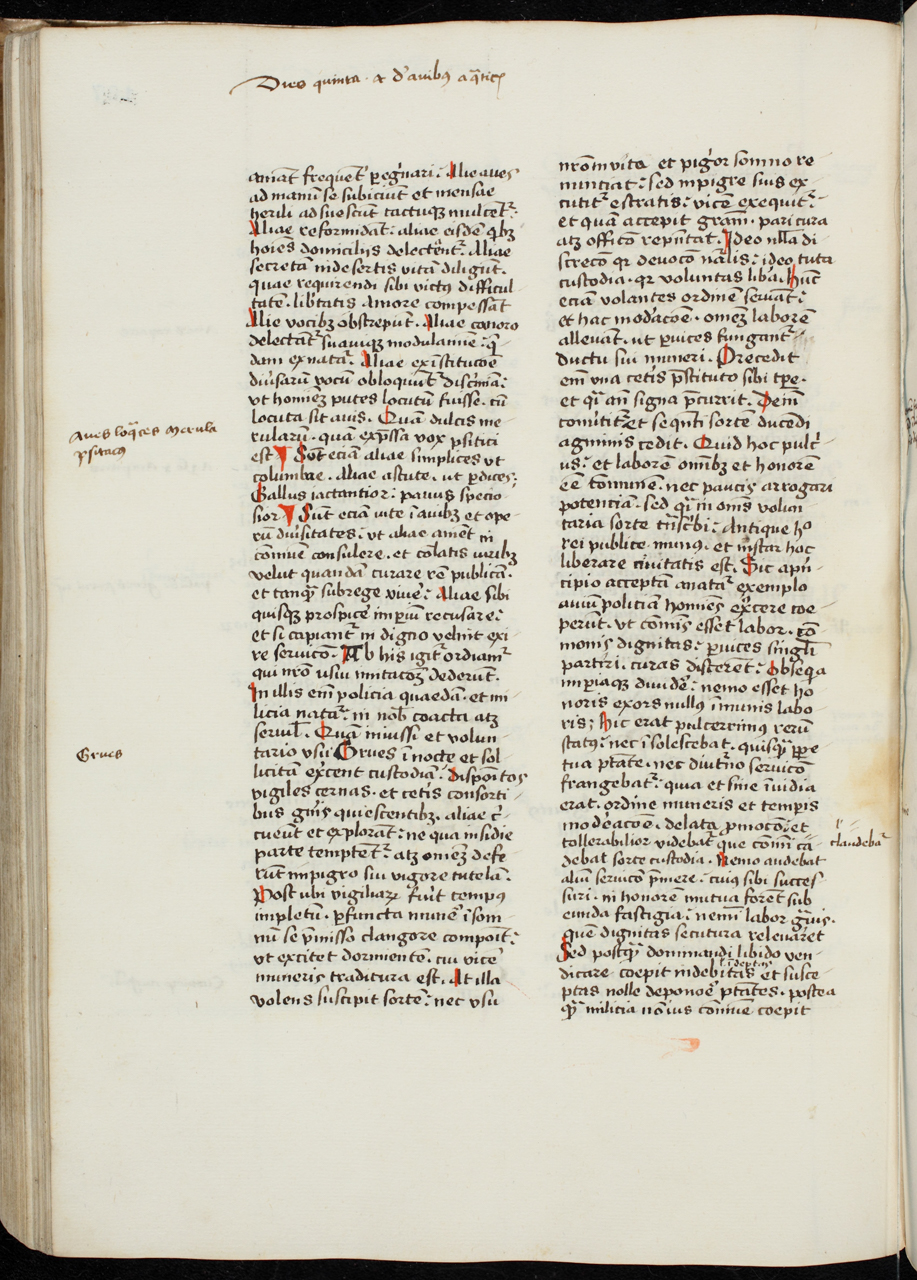 Dies quinta · & d' auibꝰ aq̄ticꝭ
amāt frequent' peg̓nari : Alie aues
ad manū se subiciūt et mensae
herili adsuescūt tactuqꝫ mulcēt᷑ .
Aliae reformidāt : aliae eisdē qͥbꝫ
hoīes domiciliꝭ delectēnt᷑ . Aliae
secretā in desertis vitā diligūt .
quae requirendi sibi victꝰ difficul -
tatē . lib̓tatis Amore compessāt
Alie vocibꝫ obstrepūt . Aliae conoro
delectāt᷑ suauiqꝫ modulamīe : q̄ -
dam ex nata᷑ . Aliae ex īstitucōe
diu̓sarū vocū obloquūt᷑ disc̓mīa :
vt homīeꝫ putes locutū fuisse . cū
locuta sit auis . Quā dulcis me -
rularū . quā exp̄ssa vox psitici
est ¶ Sūt eciā aliae simplices vt
columbae . Aliae astute . ut p̱dices :
Gallus iactantior : pauus specio -
sior ¶ Sūt eciā vite ī auibꝫ et ope -
rū diu̓sitates : vt aliae amēt in
cōmūe consulere . et col̄atis uiribꝫ
velut quandā curare rē publicā .
et tanqͣ subrege viue̓ : Aliae sibi
quisqꝫ prospice̓ imp̱iū recusare :
et si capiant᷑ in digno velint exi -
re seruicō . Ab his igit᷑ ordiam᷑
qui nr̄o usui imitacōeꝫ dederūt .
In illis em̄ policia quaedā . et mi -
licia nata᷑ . in nob̄ coacta atꝫ
seruil̄ . Quā iniussi et volun -
tario vsu Grues ī nocte et sol -
licitā exc̓ent custodiā . dispoīt os
vigiles cernas . et cetīs consorti -
bus gn̓is quiescentibꝫ . aliae c̓ -
cueūt et explorāt : ne qua insidie
parte temptent᷑ : atꝫ omēꝫ defe
rūt impigro sui vigore tutelā .
Post ubi vigiliaꝝ fu̓it tempꝰ
impletū . p̱functa mune̓ ī som -
nū se p̄misso clangore compoīt :
vt excitet dormientē . cui vice
muneris traditura est . At illa
volens suscipit sortē : nec vsu
nr̄o inuita et pig̓or somno re
nunciat : sed inpigre suis ex -
cutit᷑ estratis : vicē exequit᷑ :
et quā accepit grām . pari cura
atꝫ officō rep̄ntat . Ideo nl̄la di -
screcō qr devocō nāl̄is : ideo tuta
custodia . qr voluntas lib̓a . Hūc
eciā volantes ordinē seruāt :
et hac mod̓acōe . omēꝫ laborē
alleuāt . ut p̱uices fungant᷑ -
ductu sui muneri . Precedit
em̄ vna cetīs p̄stituto sibi tp̄e .
et qͣ ān signa p̄currit . Dein̄
com̓tit᷑ et seqn̄ti sortē ducēdi
agminis cedit . Quid hoc pulc̓ -
us : et laborē omībꝫ et honorē
eē cōmunē . nec paucis arrogari
potenciā . sed qͣ in om̄s volun
taria sorte t̄nsc̓bi : Antique hͦ
rei publice munꝰ . et instar hac
liberare ciuitatis est . Sic a pn̓ -
cipio acceptā a nata᷑ exemplo
auiū policiā homīes exc̓cere coe -
perūt . vt comīs esset labor . cō
monis dignitas : p̱uices singl̄i
partiri . curas disceret : obseqͣ
imp̱iaqꝫ diuide̓ : nemo esset ho
noris exors nullꝰ īmunis labo
ris ; Hic erat pulcerrimus rerū
statꝰ : nec ī solescebat . quisqͣ p̱pe
tua p̄tate . nec diut̓no seruicō
frangebat᷑ : quia et sine īuidia
erat . ordine muneris et tempis
mod̓acōe . delata p̱mocō : et
tollerabilior videbat᷑ que com̄i ca -
debat sorte custodia . Nemo audebat
aliū seruicō p̄mere : cuiꝰ sibi succes -
suri . in honorē mutua forēt sub
eunda fastigia : nemī labor g̓uis .
quē dignitas secutura releuaret
Sed postqͣ dominandi libido ven -
dicare . coepit indebitas et susce -
ptas nolle depone̓ p̄tates . postea
qͣ milicia nō ius cōmūe coepit
Aues loq̄ces Merula
psitacꝰ
Grues
claudeba᷑